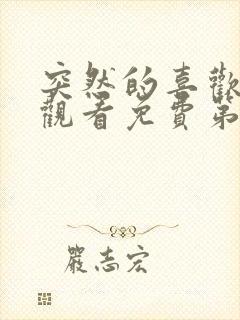 突然的喜歡
觀看免費第
嚴志宏